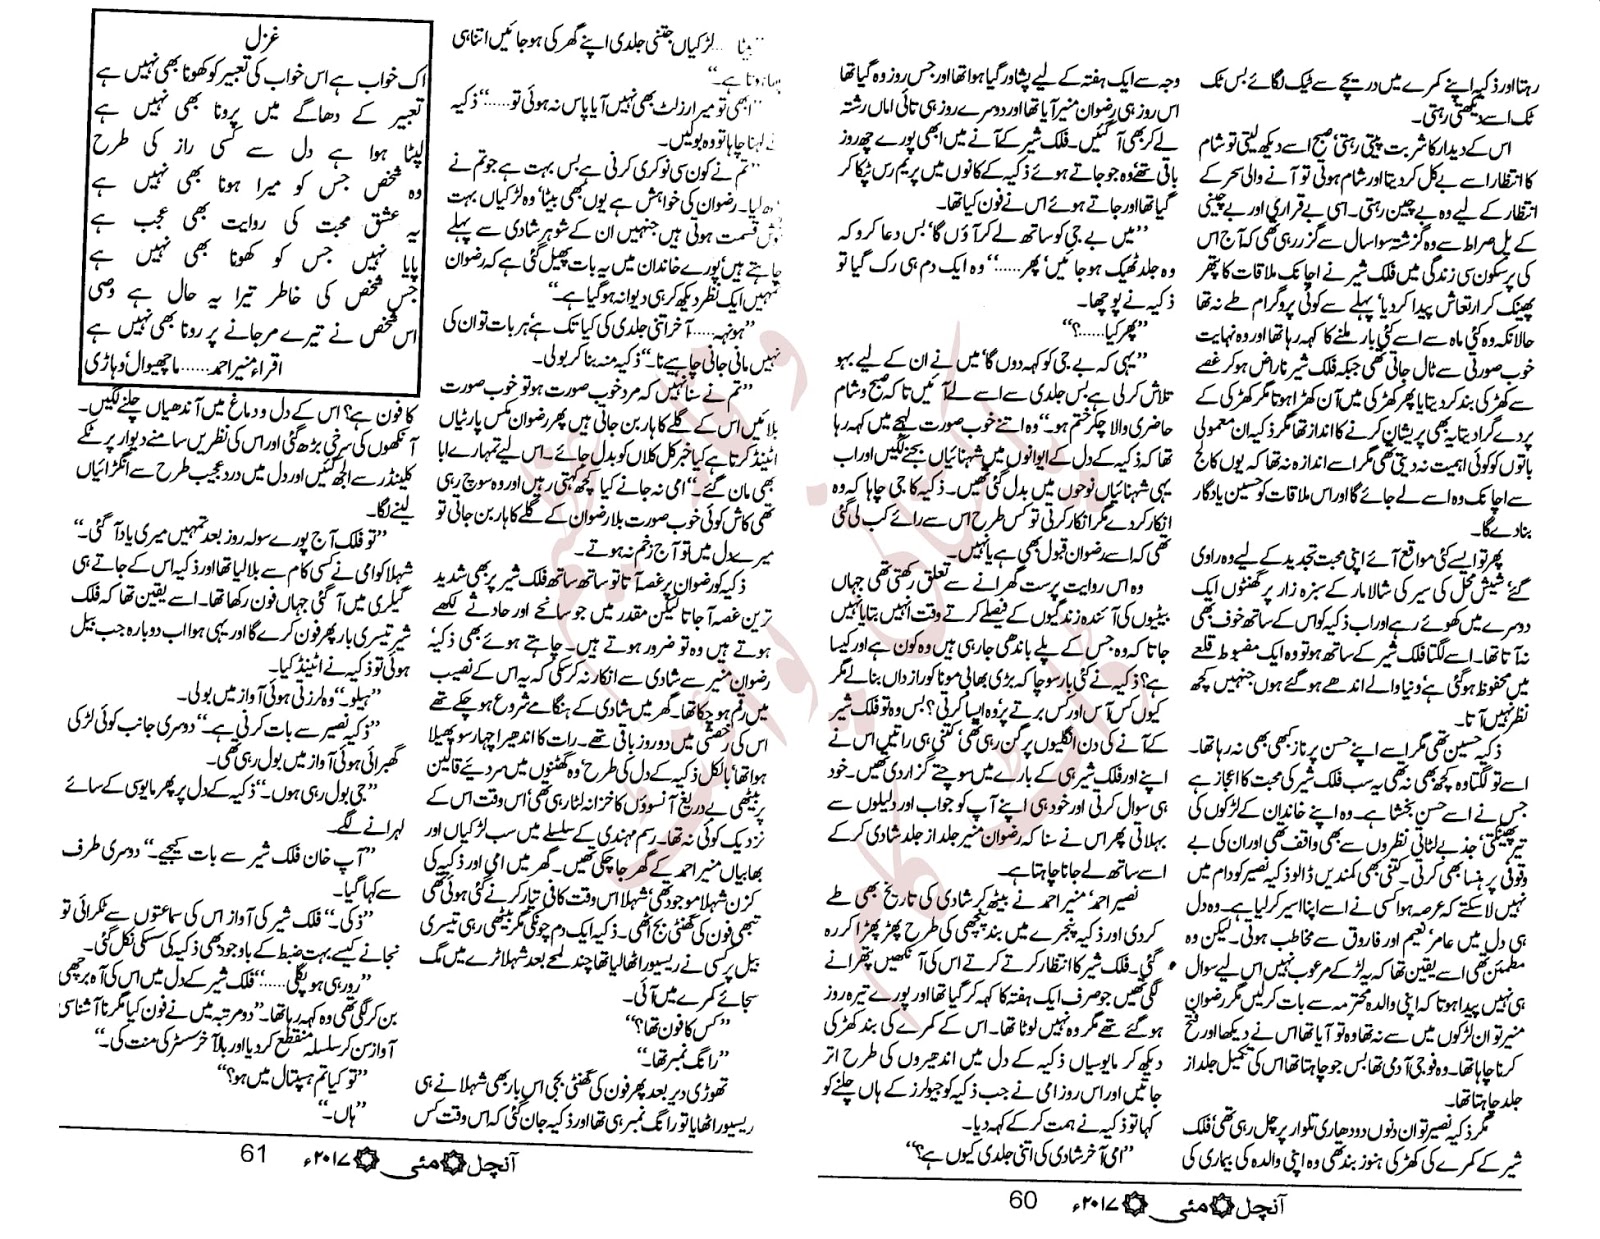 رہتا اور ذکیہ اپنے کمرے میں دریچے سے ٹیک لگائے بس ٹک
ٹک اسے دیکھتی رہتی۔
اس کے دیدار کا شربت پیتی رہتی، صبح اسے دیکھ لیتی تو شام
کا انتظار اسے بے کل کر دیتا اور شام ہوتی تو آنے والی سحر کے
انتظار کے لیے وہ بے چین رہتی۔ اسی بے قراری اور بے چینی
کے پل صراط سے وہ گزشتہ سوا سال سے گزر رہی تھی کہ آج اس
کی پرسکون سی زندگی میں فلک شیر نے اچانک ملاقات کا پتھر
پھینک کر ارتعاش پیدا کر دیا، پہلے سے کوئی پروگرام طے نہ تھا
حالانکہ وہ کئی ماہ سے اسے کئی بار ملنے کا کہہ رہا تھا اور وہ نہایت
خوب صورتی سے ٹال جاتی تھی جبکہ فلک شیر ناراض ہو کر غصے
سے کھڑکی بند کر دیتا یا پھر کھڑکی میں آن کھڑا ہوتا مگر کھڑکی کے
پردے گرا دیتا یہ بھی پریشان کرنے کا انداز تھا مگر ذکیہ ان معمولی
باتوں کو کوئی اہمیت نہ دیتی تھی مگر اسے اندازہ نہ تھا کہ یوں کالج
سے اچانک وہ اسے لے جائے گا اور اس ملاقات کو حسین یادگار
بنا دے گا۔
پھر تو ایسے کئی مواقع آئے اپنی محبت تجدید کے لیے وہ راوی
گئے، شیش محل کی سیر کی شالامار کے سبزہ زار پر گھنٹوں ایک
دوسرے میں کھوئے رہے اور اب ذکیہ کو اس کے ساتھ خوف بھی
نہ آتا تھا۔ اسے لگتا فلک شیر کے ساتھ ہو تو وہ ایک مضبوط قلعے
میں محفوظ ہو گئی ہے، دنیا والے اندھے ہو گئے ہوں جنہیں کچھ
نظر نہیں آتا۔
ذکیہ حسین تھی مگر اسے اپنے حسن پر ناز کبھی بھی نہ رہا تھا۔
اسے تو لگتا وہ کچھ بھی نہ تھی یہ سب فلک شیر کی محبت کا اعجاز ہے
جس نے اسے حسن بخشا ہے۔ وہ اپنے خاندان کے لڑکوں کی
تیر پھینکتی، جذبے لٹاتی نظروں سے بھی واقف تھی اور ان کی بے
وقوفی پر ہنسا بھی کرتی۔ کتنی بھی کمندیں ڈالو ذکیہ نصیر کو دام میں
نہیں لا سکتے کہ عرصہ ہوا کسی نے اسے اپنا اسیر کر لیا ہے۔ وہ دل
ہی دل میں عامر، نعیم اور فاروق سے مخاطب ہوتی۔ لیکن وہ
مطمئن تھی اسے یقین تھا کہ یہ لڑکے مرعوب نہیں اس لیے سوال
ہی نہیں پیدا ہوتا کہ اپنی والدہ محترمہ سے بات کر لیں مگر رضوان
منیر تو ان لڑکوں میں سے نہ تھا وہ تو آیا تھا اس نے دیکھا اور فتح
کرنا چاہا تھا۔ وہ فوجی آدمی تھا بس جو چاہتا تھا اس کی تکمیل جلد از
جلد چاہتا تھا۔
مگر ذکیہ نصیر تو ان دنوں دو دھاری تلوار پر چل رہی تھی، فلک
شیر کے کمرے کی کھڑکی ہنوز بند تھی وہ اپنی والدہ کی بیماری کی
وجہ سے ایک ہفتہ کے لیے پشاور گیا ہوا تھا اور جس روز وہ گیا تھا
اس روز ہی رضوان منیر آیا تھا اور دوسرے روز ہی تائی اماں رشتہ
لے کر بھی آ گئیں۔ فلک شیر کے آنے میں ابھی پورے چھ روز
باقی تھے، وہ جو جاتے ہوئے ذکیہ کے کانوں میں پریم رس ٹپکا کر
گیا تھا اور جاتے ہوئے اس نے فون کیا تھا۔
”میں بے جی کو ساتھ لے کر آؤں گا‘ بس دعا کرو کہ
وہ جلد ٹھیک ہو جائیں‘ پھر......“ وہ ایک دم ہی رک گیا تو
ذکیہ نے پوچھا۔
”پھر کیا.....؟“
”یہی کہ بے جی کو کہہ دوں گا‘ میں نے ان کے لیے بہو
تلاش کر لی ہے بس جلدی سے اسے لے آئیں تاکہ صبح و شام
حاضری والا چکر ختم ہو۔“ وہ اتنے خوب صورت لہجے میں کہہ رہا
تھا کہ ذکیہ کے دل کے ایوانوں میں شہنائیاں بجنے لگیں اور اب
یہی شہنائیاں نوحوں میں بدل گئی تھیں۔ ذکیہ کا جی چاہا کہ وہ
انکار کر دے مگر انکار کرتی تو کس طرح اس سے رائے کب لی گئی
تھی کہ اسے رضوان قبول بھی ہے یا نہیں۔
وہ اس روایت پرست گھرانے سے تعلق رکھتی تھی جہاں
بیٹیوں کی آئندہ زندگیوں کے فیصلے کرتے وقت انہیں بتایا نہیں
جاتا کہ وہ جس کے پلے باندھی جا رہی ہیں وہ کون ہے اور کیسا
ہے؟ ذکیہ نے کئی بار سوچا کہ بڑی بھابی مونا کو رازداں بنا لے مگر
کیوں کس آس اور کس برتے پر وہ ایسا کرتی؟ بس وہ تو فلک شیر
کے آنے کی دن انگلیوں پر گن رہی تھی، کتنی ہی راتیں اس نے
اپنے اور فلک شیر ہی کے بارے میں سوچتے گزار دی تھیں۔ خود
ہی سوال کرتی اور خود ہی اپنے آپ کو جواب اور دلیلوں سے
بہلاتی پھر اس نے سنا کہ رضوان منیر جلد از جلد شادی کر کے
اسے ساتھ لے جانا چاہتا ہے۔
نصیر احمد، منیر احمد نے بیٹھ کر شادی کی تاریخ بھی طے
کر دی اور ذکیہ پنجرے میں بند پنچھی کی طرح پھڑ پھڑا کر رہ
گئی۔ فلک شیر کا انتظار کرتے کرتے اس کی آنکھیں پتھرانے
لگی تھیں جو صرف ایک ہفتہ کا کہہ کر گیا تھا اور پورے تیرہ روز
ہو گئے تھے مگر وہ نہیں لوٹا تھا۔ اس کے کمرے کی بند کھڑکی
دیکھ کر مایوسیاں ذکیہ کے دل میں اندھیروں کی طرح اتر
جاتیں اور اس روز امی نے جب ذکیہ کو جیولرز کے ہاں چلنے کو
کہا تو ذکیہ نے ہمت کر کے کہہ دیا۔
”امی آخر شادی کی اتنی جلدی کیوں ہے؟“
آنچل مئی ۲۰۱۷ء 60
”بیٹا ...لڑکیاں جتنی جلدی اپنے گھر کی ہو جائیں اتنا ہی
ہوتا ہے۔“
”ابھی تو میرا رزلٹ بھی نہیں آیا پاس نہ ہوئی تو......“ ذکیہ
کہنا چاہا تو وہ بولیں۔
”تم نے کون سی نوکری کرنی ہے بس بہت ہے جو تم نے
پڑھ لیا۔ رضوان کی خواہش ہے یوں بھی بیٹا‘ وہ لڑکیاں بہت
خوش قسمت ہوتی ہیں جنہیں ان کے شوہر شادی سے پہلے
چاہتے ہیں‘ پورے خاندان میں یہ بات پھیل گئی ہے کہ رضوان
تمہیں ایک نظر دیکھ کر ہی دیوانہ ہو گیا ہے۔“
”ہونہہ..... آخر اتنی جلدی کی کیا تک ہے‘ ہر بات تو ان کی
نہیں مانی جانی چاہیے نا۔“ ذکیہ منہ بنا کر بولی۔
”تم نے سنا نہیں کہ مرد خوب صورت ہو تو خوب صورت
بلائیں اس کے گلے کا ہار بن جاتی ہیں پھر رضوان مکس پارٹیاں
اٹینڈ کرتا ہے کیا خبر کل کلاں کو بدل جائے۔ اس لیے تمہارے ابا
بھی مان گئے۔“ امی نہ جانے کیا کچھ کہتی رہیں اور وہ سوچ رہی
تھی کاش کوئی خوب صورت بلا رضوان کے گلے کا ہار بن جاتی تو
میرے دل میں تو آج زخم نہ ہوتے۔
ذکیہ کو رضوان پر غصہ آتا تو ساتھ ساتھ فلک شیر پر بھی شدید
ترین غصہ آ جاتا لیکن مقدر میں جو سانحے اور حادثے لکھے
ہوتے ہیں وہ تو ضرور ہوتے ہیں۔ چاہتے ہوئے بھی ذکیہ‘
رضوان منیر سے شادی سے انکار نہ کر سکی کہ یہ اس کے نصیب
میں رقم ہو چکا تھا۔ گھر میں شادی کے ہنگامے شروع ہو چکے تھے
اس کی رخصتی میں دو روز باقی تھے۔ رات کا اندھیرا چہار سو پھیلا
ہوا تھا‘ بالکل ذکیہ کے دل کی طرح‘ وہ گھٹنوں میں سر دیئے قالین
پر بیٹھی بے دریغ آنسوؤں کا خزانہ لٹا رہی تھی‘ اس وقت اس کے
نزدیک کوئی نہ تھا۔ رسم مہندی کے سلسلے میں سب لڑکیاں اور
بھابیاں منیر احمد کے گھر جا چکی تھیں۔ گھر میں امی اور ذکیہ کی
کزن شہلا موجود تھی‘ شہلا اس وقت کافی تیار کرنے گئی ہوئی تھی
تبھی فون کی گھنٹی بج اٹھی۔ ذکیہ ایک دم چونکی مگر بیٹھی رہی تیسری
بیل پر کسی نے ریسیور اٹھا لیا تھا چند لمحے بعد شہلا ٹرے میں مگ
سجائے کمرے میں آئی۔
”کس کا فون تھا؟“
”رانگ نمبر تھا۔“
تھوڑی دیر بعد پھر فون کی گھنٹی بجی اس بار بھی شہلا نے ہی
ریسیور اٹھایا تو رانگ نمبر ہی تھا اور ذکیہ جان گئی کہ اس وقت کس
غزل
اک خواب ہے اس خواب کی تعبیر کو کھونا بھی نہیں ہے
تعبیر کے دھاگے میں پرونا بھی نہیں ہے
لپٹا ہوا ہے دل سے کسی راز کی طرح
وہ شخص جس کو میرا ہونا بھی نہیں ہے
یہ عشق محبت کی روایت بھی عجب ہے
پایا نہیں جس کو کھونا بھی نہیں ہے
جس شخص کی خاطر تیرا یہ حال ہے وصی
اس شخص نے تیرے مر جانے پر رونا بھی نہیں ہے
اقراء منیر احمد...... ماچھیوال‘ وہاڑی
کا فون ہے؟ اس کے دل و دماغ میں آندھیاں چلنے لگیں۔
آنکھوں کی سرخی بڑھ گئی اور اس کی نظریں سامنے دیوار پر ٹنگے
کلینڈر سے الجھ گئیں اور دل میں درد عجیب طرح سے انگڑائیاں
لینے لگا۔
”تو فلک آج پورے سولہ روز بعد تمہیں میری یاد آ گئی۔“
شہلا کو امی نے کسی کام سے بلا لیا تھا اور ذکیہ اس کے جاتے ہی
گیلری میں آ گئی جہاں فون رکھا تھا۔ اسے یقین تھا کہ فلک
شیر تیسری بار پھر فون کرے گا اور یہی ہوا اب دوبارہ جب بیل
ہوئی تو ذکیہ نے اٹینڈ کیا۔
”ہیلو۔“ وہ لرزتی ہوئی آواز میں بولی۔
”ذکیہ نصیر سے بات کرنی ہے۔“ دوسری جانب کوئی لڑکی
گھبرائی ہوئی آواز میں بول رہی تھی۔
”جی بول رہی ہوں۔“ ذکیہ کے دل پر پھر مایوسی کے سائے
لہرانے لگے۔
”آپ خان فلک شیر سے بات کیجیے۔“ دوسری طرف
سے کہا گیا۔
”ذکی۔“ فلک شیر کی آواز اس کی سماعتوں سے ٹکرائی تو
نجانے کیسے بہت ضبط کے باوجود بھی ذکیہ کی سسکی نکل گئی۔
”رو رہی ہو پگلی......“ فلک شیر کے دل میں اس کی آہ برچھی
بن کر لگی تھی وہ کہہ رہا تھا۔ ”دو مرتبہ میں نے فون کیا مگر نا آشنا سی
آواز سن کر سلسلہ منقطع کر دیا اور بالآخر سسٹر کی منت کی۔“
”تو کیا تم ہسپتال میں ہو؟“
”ہاں۔“
آنچل مئی ۲۰۱۷ء 61